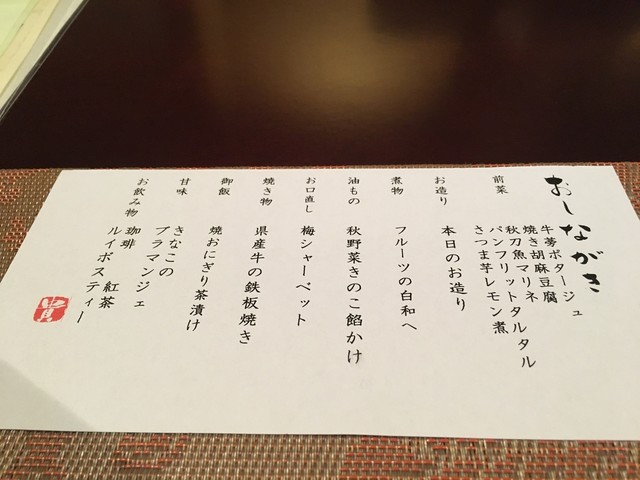 おしながき
前菜
牛蒡ポタージュ
焼き胡麻豆腐
秋刀魚マリネ
パンフリットタルタル
さつま芋レモン煮
お造り
本日のお造り
煮物
フルーツの白和へ
油もの
秋野菜きのこ餡かけ
お口直し
梅シャーベット
焼き物
県産牛の鉄板焼き
御飯
焼おにぎり茶漬け
甘味
きなこの
ブラマンジェ
お飲み物
珈琲 紅茶
ルイボスティー